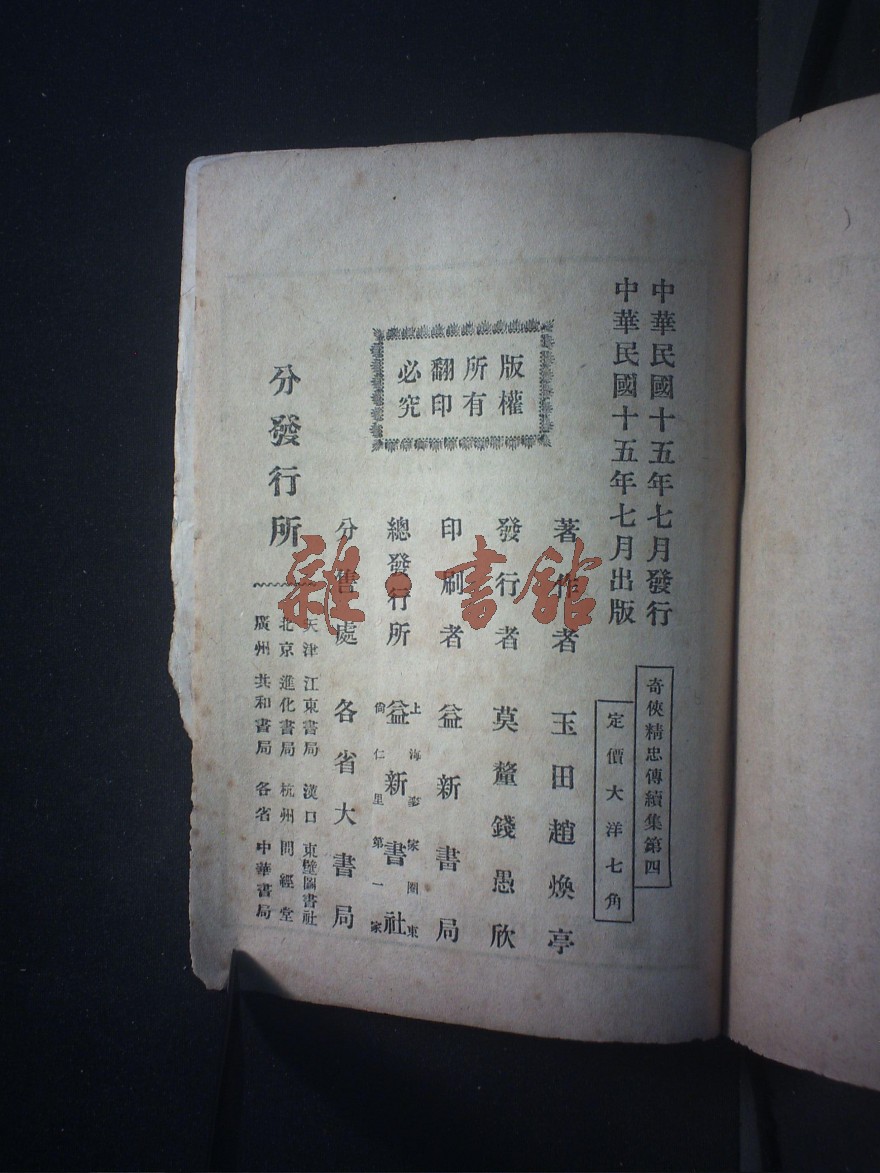 中華民國十五年七月發行
中華民國十五年七月出版
奇俠精忠傳續集第四
定價大洋七角
版權
所有
翻印
必究
著作者 玉田趙煥亭
發行者 莫釐錢愚欣
印刷者 益新書局
總發行所 上海麥家圈東 益新書社 尙仁里第一家
分售處 各省大書局
分發行所
天津 江東書局 漢口 東壁圖書社
北京 進化書局 杭州 問經堂
廣州 共和書局 各省 中華書局
雜·書館